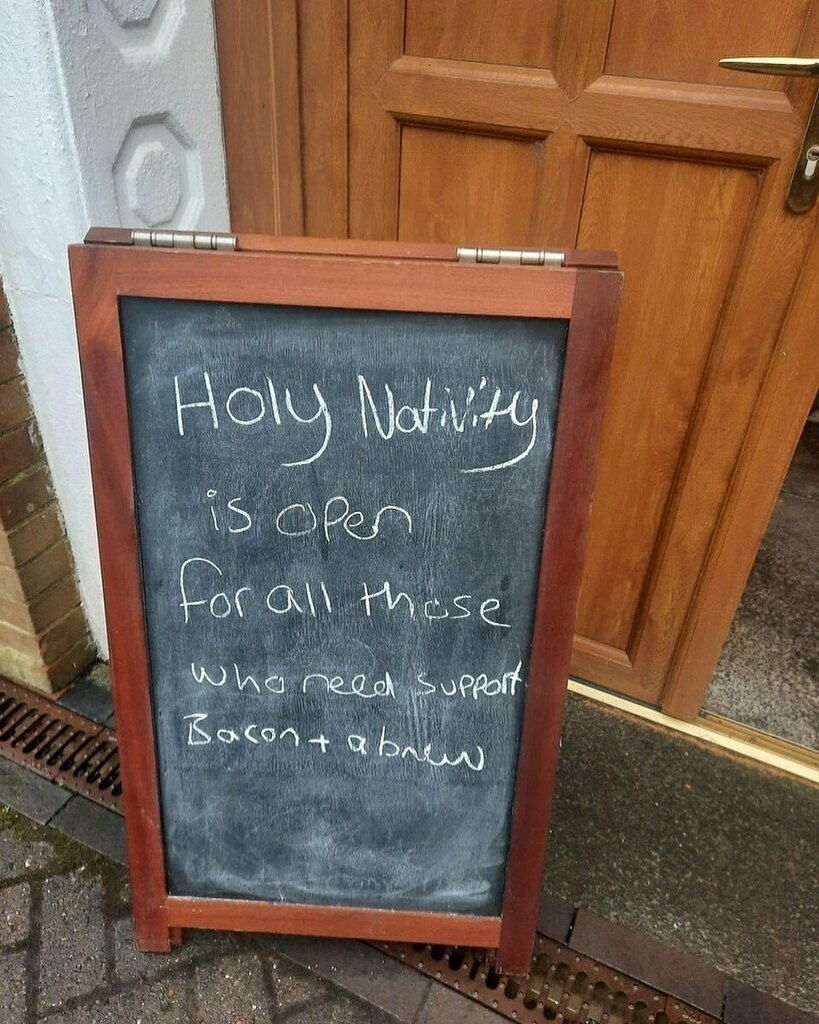 Holy Nativity
is open
for all those
who need support.
Bacon + a brew